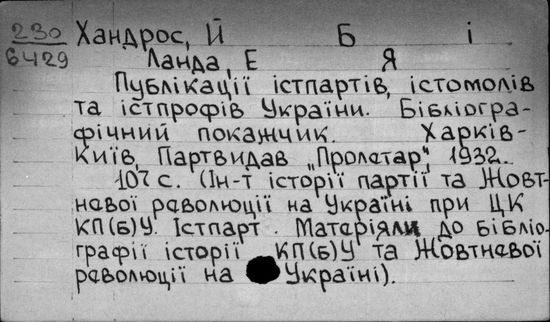 230 Хандрос, Й Б і
6429 Ланда, Е Я
Публікації істпартів, істомолів
та істпрофів України. Бібліогра-
фічний покажчик. Харків-
Київ, Партвидав „Пролетар“, 1932.
107 с. (Ін-т історії партії та Жовт-
невої революції на Україні при ЦК
КП(б)У. Істпарт. Матеріяли до бібліо-
графії історії КП(б)У та Жовтневої
революції на Україні).